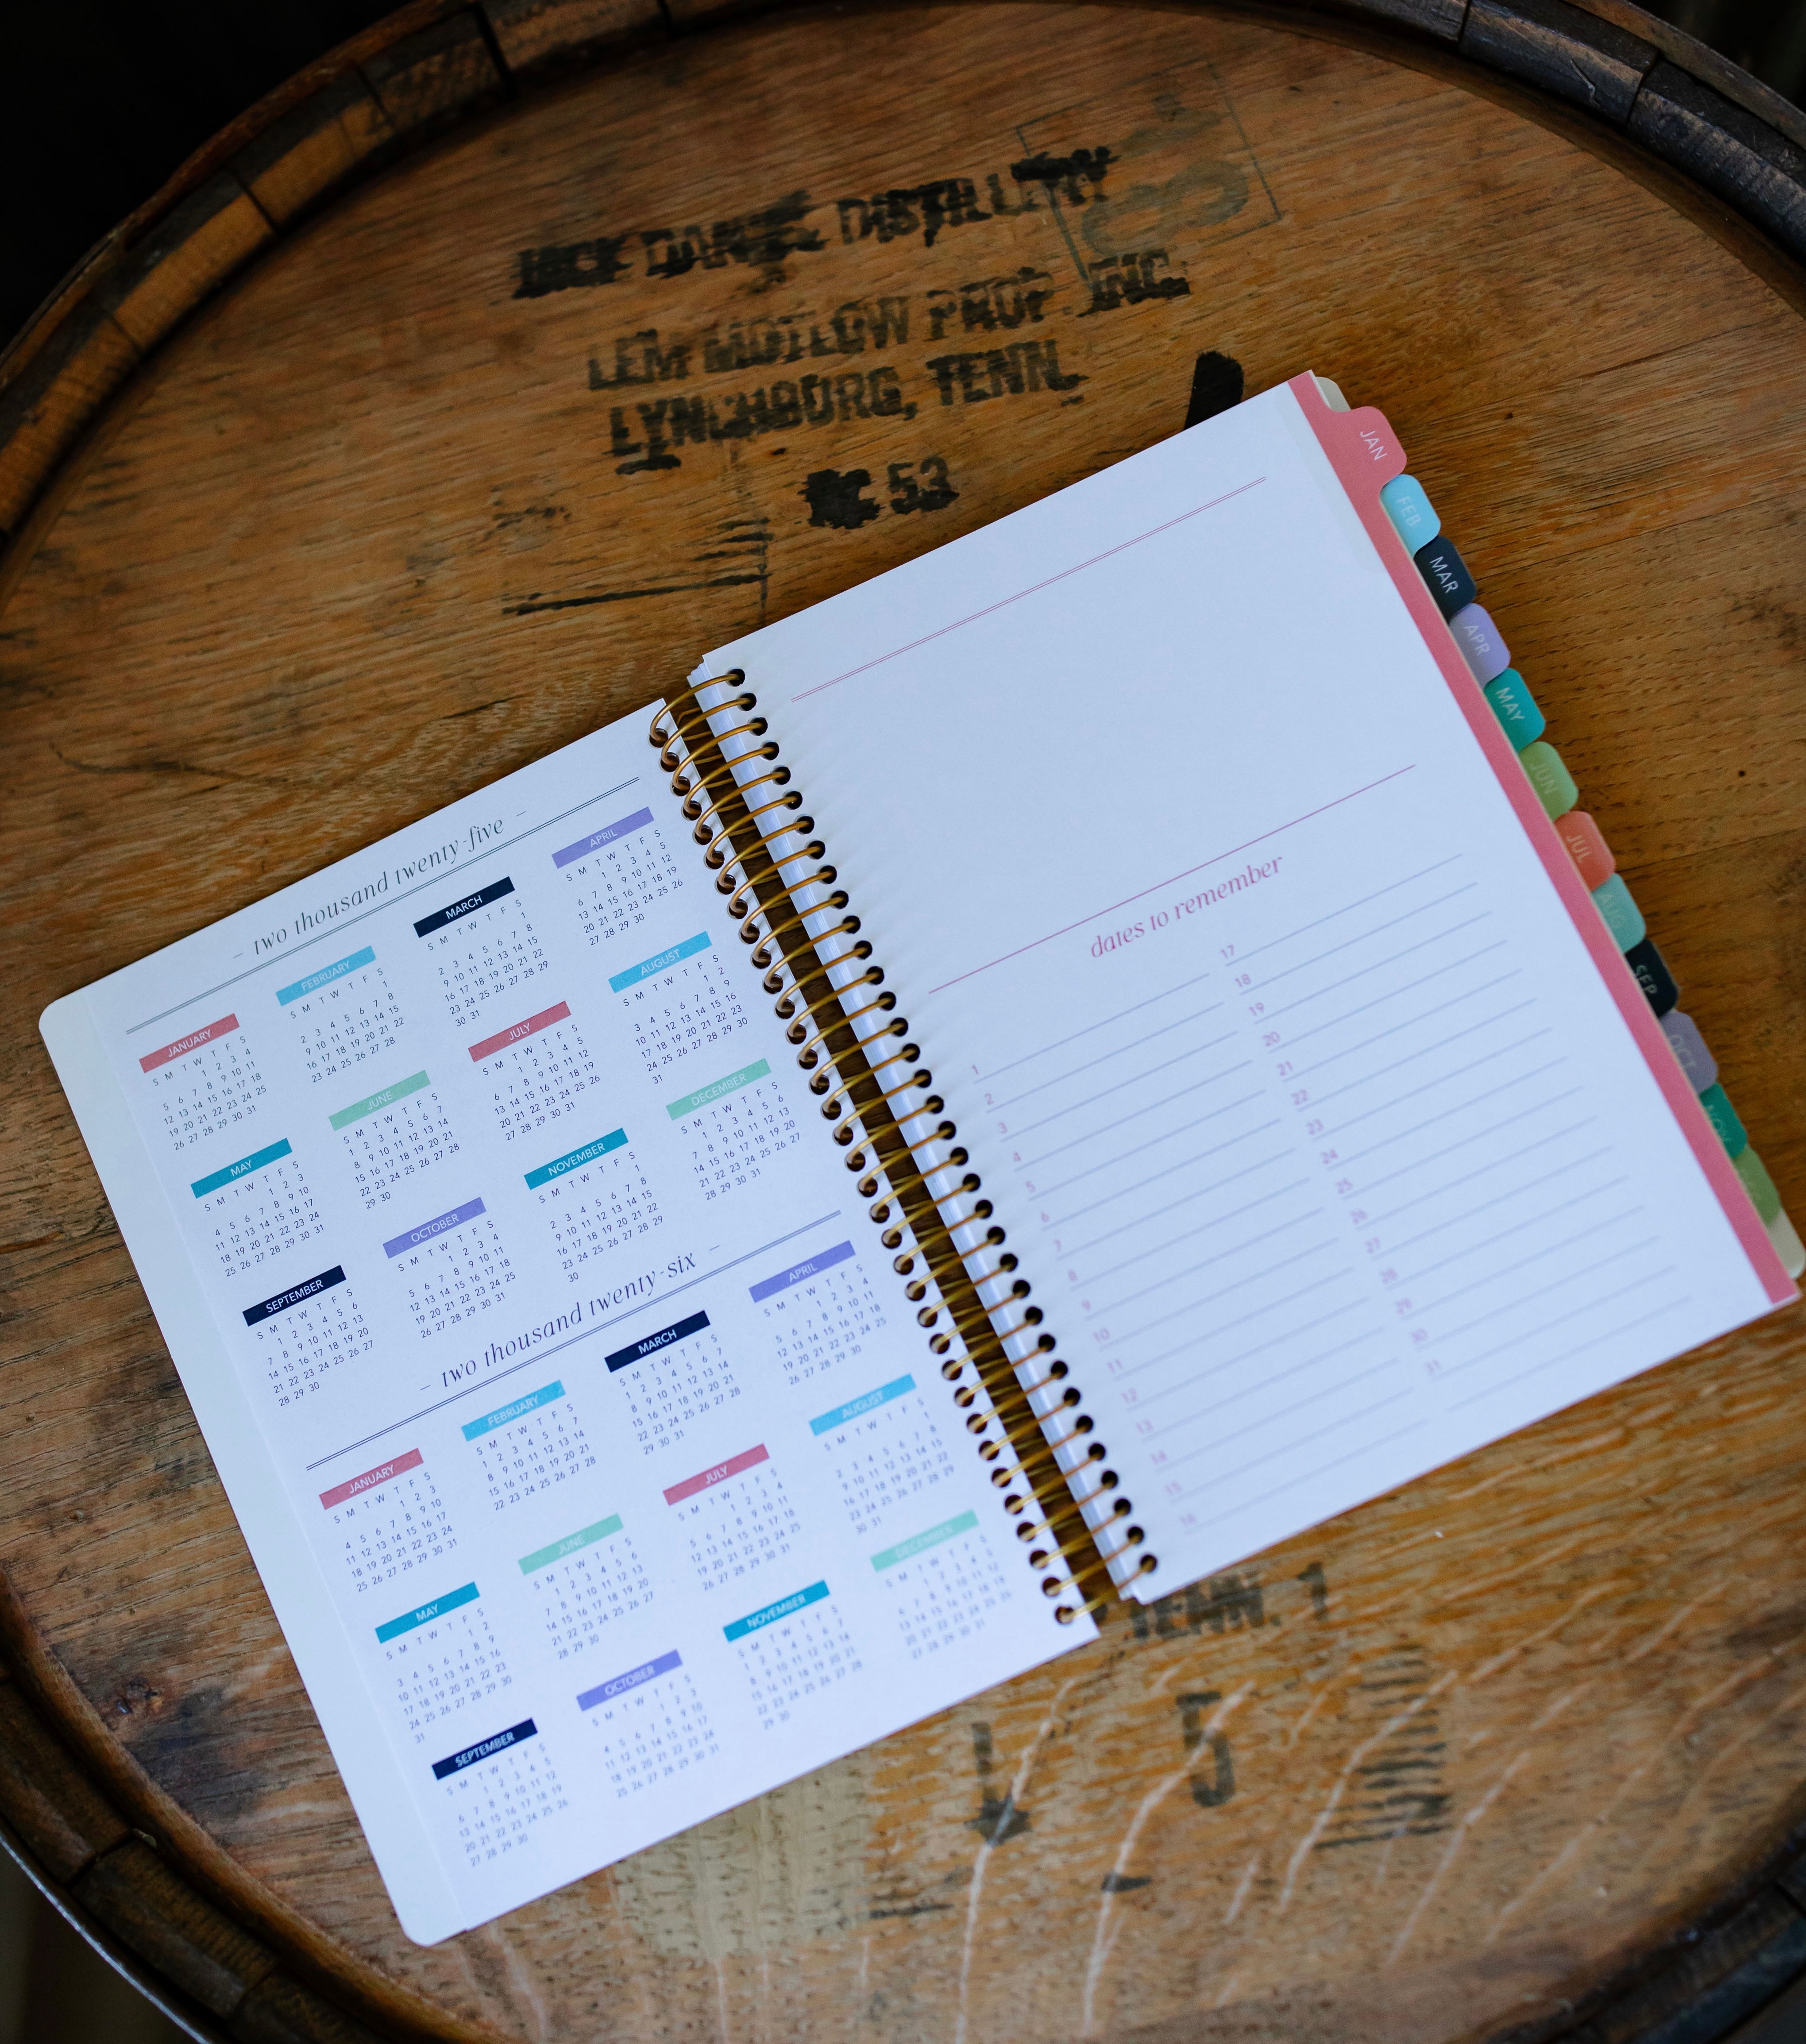 JACK DANIEL DISTILLERY
LEM MOTLOW PROP. INC.
LYNCHBURG, TENN.
53
– two thousand twenty-five –
JANUARY
S M T W T F S
1 2 3 4
5 6 7 8 9 10 11
12 13 14 15 16 17 18
19 20 21 22 23 24 25
26 27 28 29 30 31
FEBRUARY
S M T W T F S
1
2 3 4 5 6 7 8
9 10 11 12 13 14 15
16 17 18 19 20 21 22
23 24 25 26 27 28
MARCH
S M T W T F S
1
2 3 4 5 6 7 8
9 10 11 12 13 14 15
16 17 18 19 20 21 22
23 24 25 26 27 28 29
30 31
APRIL
S M T W T F S
1 2 3 4 5
6 7 8 9 10 11 12
13 14 15 16 17 18 19
20 21 22 23 24 25 26
27 28 29 30
MAY
S M T W T F S
1 2 3
4 5 6 7 8 9 10
11 12 13 14 15 16 17
18 19 20 21 22 23 24
25 26 27 28 29 30 31
JUNE
S M T W T F S
1 2 3 4 5 6 7
8 9 10 11 12 13 14
15 16 17 18 19 20 21
22 23 24 25 26 27 28
29 30
JULY
S M T W T F S
1 2 3 4 5
6 7 8 9 10 11 12
13 14 15 16 17 18 19
20 21 22 23 24 25 26
27 28 29 30 31
AUGUST
S M T W T F S
1 2
3 4 5 6 7 8 9
10 11 12 13 14 15 16
17 18 19 20 21 22 23
24 25 26 27 28 29 30
31
SEPTEMBER
S M T W T F S
1 2 3 4 5 6
7 8 9 10 11 12 13
14 15 16 17 18 19 20
21 22 23 24 25 26 27
28 29 30
OCTOBER
S M T W T F S
1 2 3 4
5 6 7 8 9 10 11
12 13 14 15 16 17 18
19 20 21 22 23 24 25
26 27 28 29 30 31
NOVEMBER
S M T W T F S
1
2 3 4 5 6 7 8
9 10 11 12 13 14 15
16 17 18 19 20 21 22
23 24 25 26 27 28 29
30
DECEMBER
S M T W T F S
1 2 3 4 5 6
7 8 9 10 11 12 13
14 15 16 17 18 19 20
21 22 23 24 25 26 27
28 29 30 31
– two thousand twenty-six –
JANUARY
S M T W T F S
1 2 3
4 5 6 7 8 9 10
11 12 13 14 15 16 17
18 19 20 21 22 23 24
25 26 27 28 29 30 31
FEBRUARY
S M T W T F S
1 2 3 4 5 6 7
8 9 10 11 12 13 14
15 16 17 18 19 20 21
22 23 24 25 26 27 28
MARCH
S M T W T F S
1 2 3 4 5 6 7
8 9 10 11 12 13 14
15 16 17 18 19 20 21
22 23 24 25 26 27 28
29 30 31
APRIL
S M T W T F S
1 2 3 4
5 6 7 8 9 10 11
12 13 14 15 16 17 18
19 20 21 22 23 24 25
26 27 28 29 30
MAY
S M T W T F S
1 2
3 4 5 6 7 8 9
10 11 12 13 14 15 16
17 18 19 20 21 22 23
24 25 26 27 28 29 30
31
JUNE
S M T W T F S
1 2 3 4 5 6
7 8 9 10 11 12 13
14 15 16 17 18 19 20
21 22 23 24 25 26 27
28 29 30
JULY
S M T W T F S
1 2 3 4
5 6 7 8 9 10 11
12 13 14 15 16 17 18
19 20 21 22 23 24 25
26 27 28 29 30 31
AUGUST
S M T W T F S
1
2 3 4 5 6 7 8
9 10 11 12 13 14 15
16 17 18 19 20 21 22
23 24 25 26 27 28 29
30 31
SEPTEMBER
S M T W T F S
1 2 3 4 5
6 7 8 9 10 11 12
13 14 15 16 17 18 19
20 21 22 23 24 25 26
27 28 29 30
OCTOBER
S M T W T F S
1 2 3
4 5 6 7 8 9 10
11 12 13 14 15 16 17
18 19 20 21 22 23 24
25 26 27 28 29 30 31
NOVEMBER
S M T W T F S
1 2 3 4 5 6 7
8 9 10 11 12 13 14
15 16 17 18 19 20 21
22 23 24 25 26 27 28
29 30
DECEMBER
S M T W T F S
1 2 3 4 5
6 7 8 9 10 11 12
13 14 15 16 17 18 19
20 21 22 23 24 25 26
27 28 29 30 31
dates to remember
1
2
3
4
5
6
7
8
9
10
11
12
13
14
15
16
17
18
19
20
21
22
23
24
25
26
27
28
29
30
31
JAN
FEB
MAR
APR
MAY
JUN
JUL
AUG
SEP
OCT
NOV
TENN. 1
5